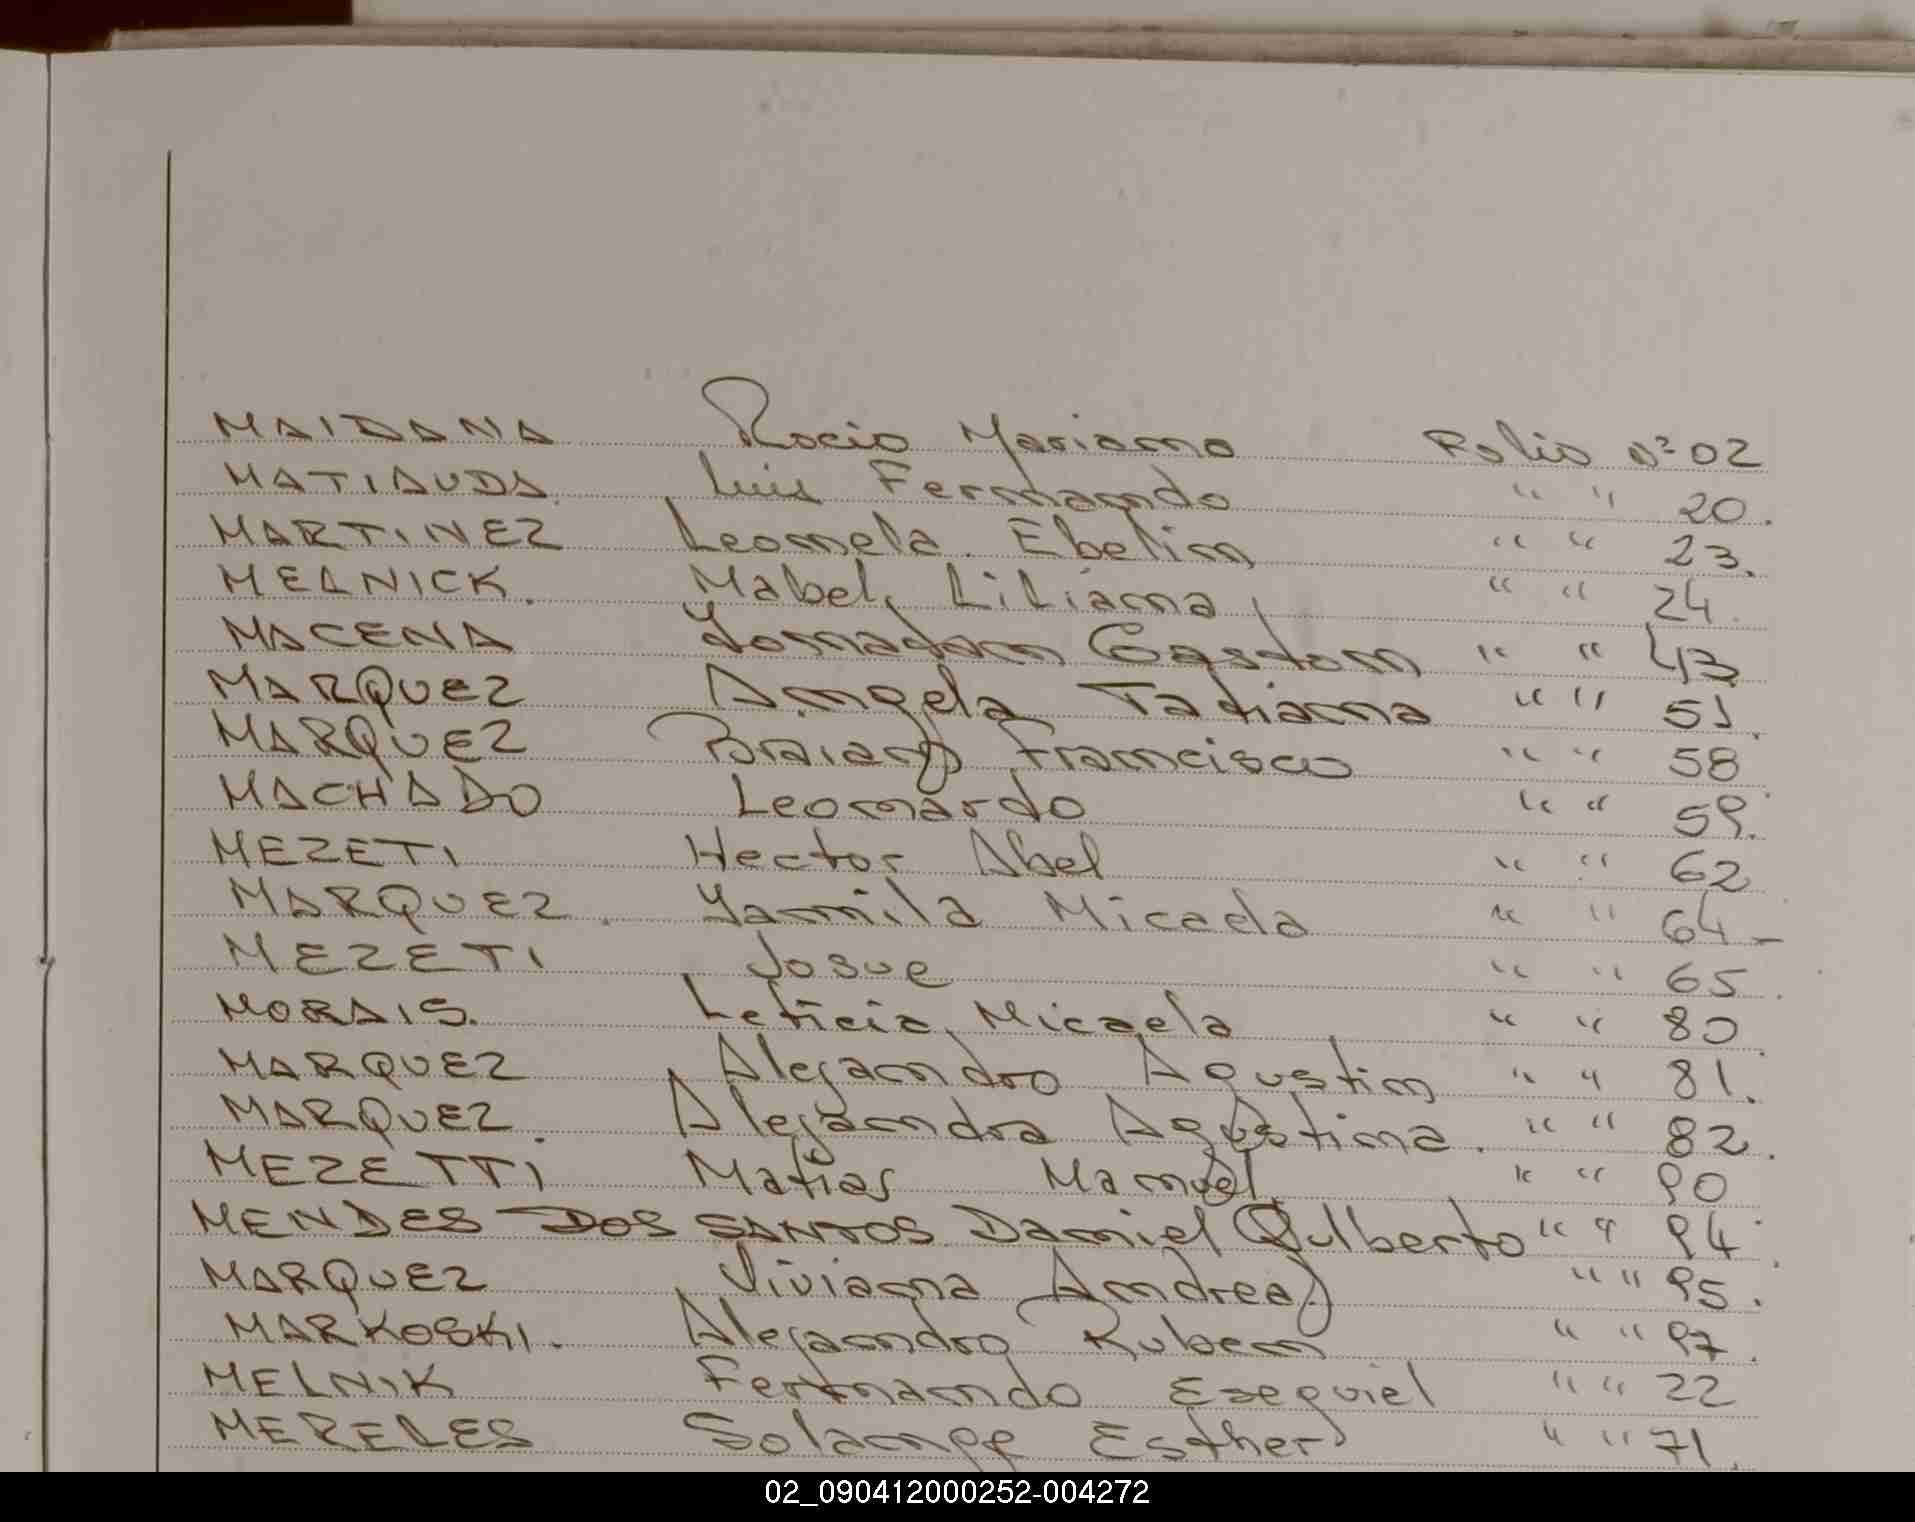 MAIDANA Rocio Mariana Folio Nº 02
MATIAUDA Luis Fernando " " 20.
MARTINEZ Leonela Ebelin " " 23.
MELNICK. Mabel Liliana " " 24.
MACENA Jonadan Gastom " " 43
MARQUEZ Angela Tatiana " " 51
MARQUEZ Braian Francisco " " 58
MACHADO Leonardo " " 59.
MEZETI Hector Abel " " 62
MARQUEZ. Yamila Micaela " " 64-
MEZETI Josue " " 65.
MORAIS. Leticia Micaela " " 80
MARQUEZ Alejandro Agustin " " 81.
MARQUEZ. Alejandra Agustina. " " 82.
MEZETTI Matias Manuel " " 90
MENDES DOS SANTOS Daniel Gulberto " " 94
MARQUEZ Viviana Andrea " " 95.
MARKOSKI. Alejandro Ruben " " 97.
MELNIK Fernando Esequiel " " 22
MERELES Solange Esther " " 71.
02_090412000252-004272